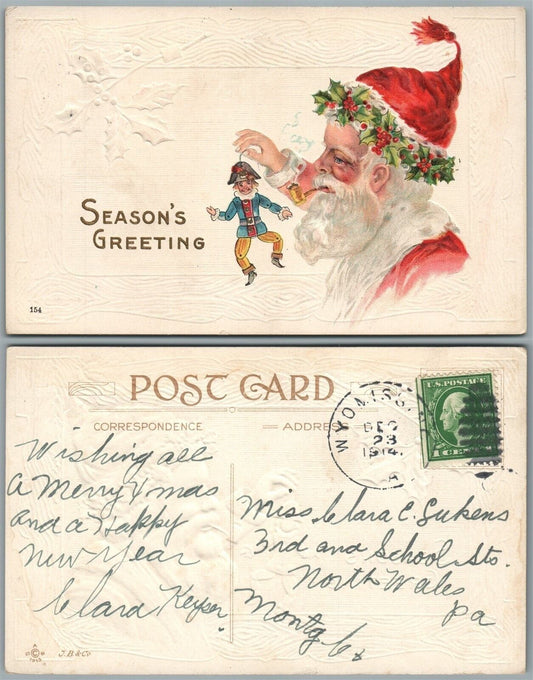 SEASON'S
GREETING
154
POST CARD
CORRESPONDENCE
ADDRESS
U.S. POSTAGE
1 CENT
WYOMISS
DEC
23
1914
Wishing all
a Merry Xmas
and a Happy
New Year
Clara Keyser
Miss Clara C. Sukens
3rd and School Sts.
North Wales
Montg Co
Pa
J.B.& Co